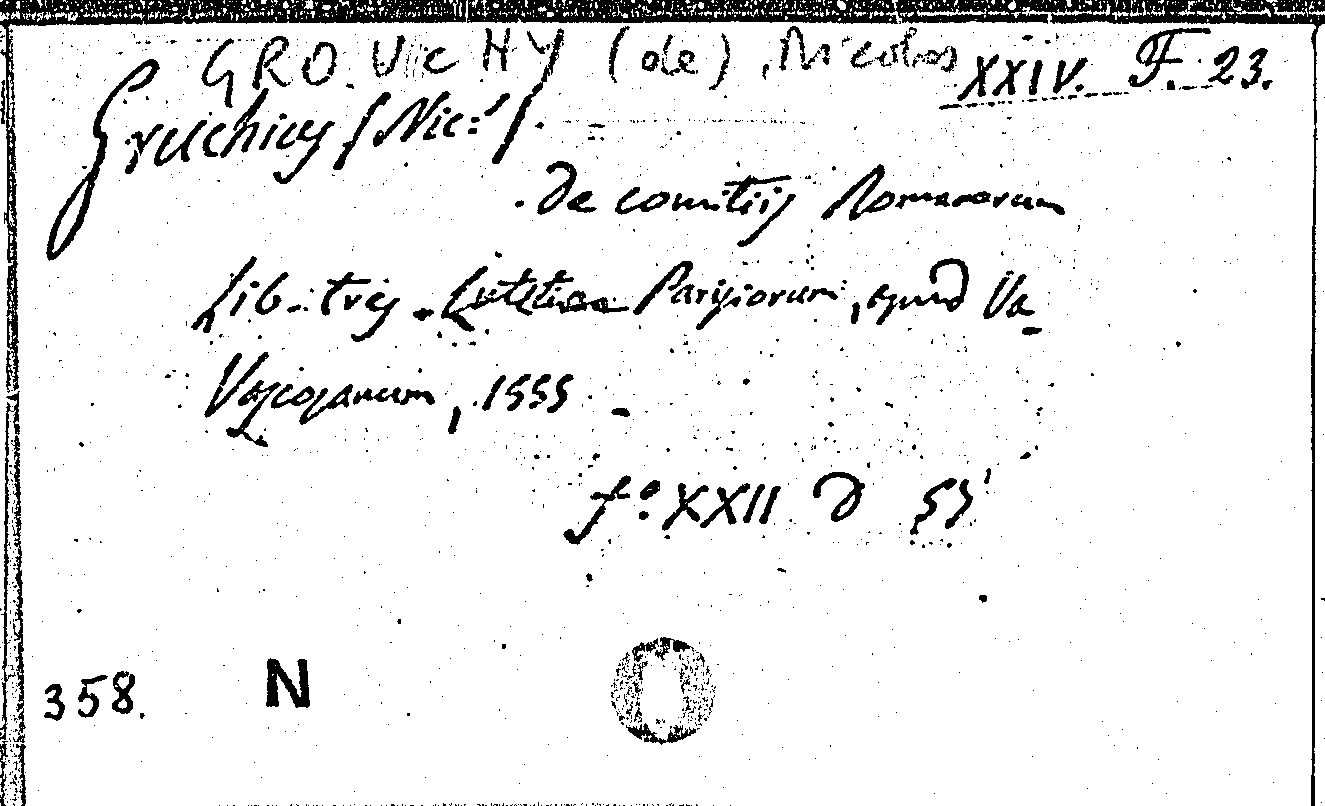 GROUCHY (de), Nicolas
XXIV. F. 23.
Gruchius (Nic:).
De comitiis Romanorum
Lib. tres. Lutetiae Parisiorum, apud Va
Vascosanum, 1555
f.° XXII D 55
358. N